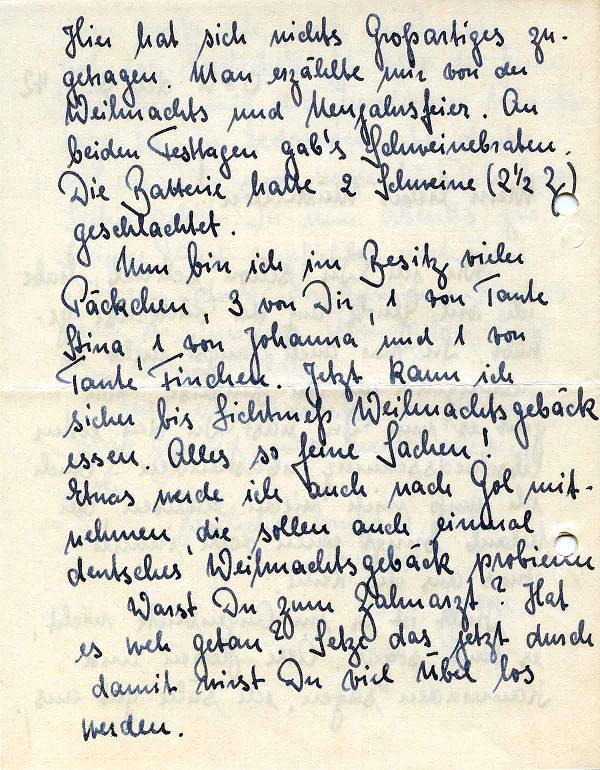 Hier hat sich nichts Großartiges zu-
getragen. Man erzählte mir von der
Weihnachts und Neujahrsfeier. An
beiden Festtagen gab's Schweinebraten.
Die Batterie hatte 2 Schweine (2½ Z)
geschlachtet.
Nun bin ich im Besitz vieler
Päckchen, 3 von Dir, 1 von Tante
Stina, 1 von Johanna, und 1 von
Tante Finchen. Jetzt kann ich
sicher bis Lichtmeß Weihnachtsgebäck
essen. Alles so feine Sachen!
Etwas werde ich auch nach Gol mit-
nehmen, die sollen auch einmal
deutsches Weihnachtsgebäck probieren
Warst Du zum Zahnarzt? Hat
es weh getan? Setze das jetzt durch
damit wirst Du viel Übel los
werden.